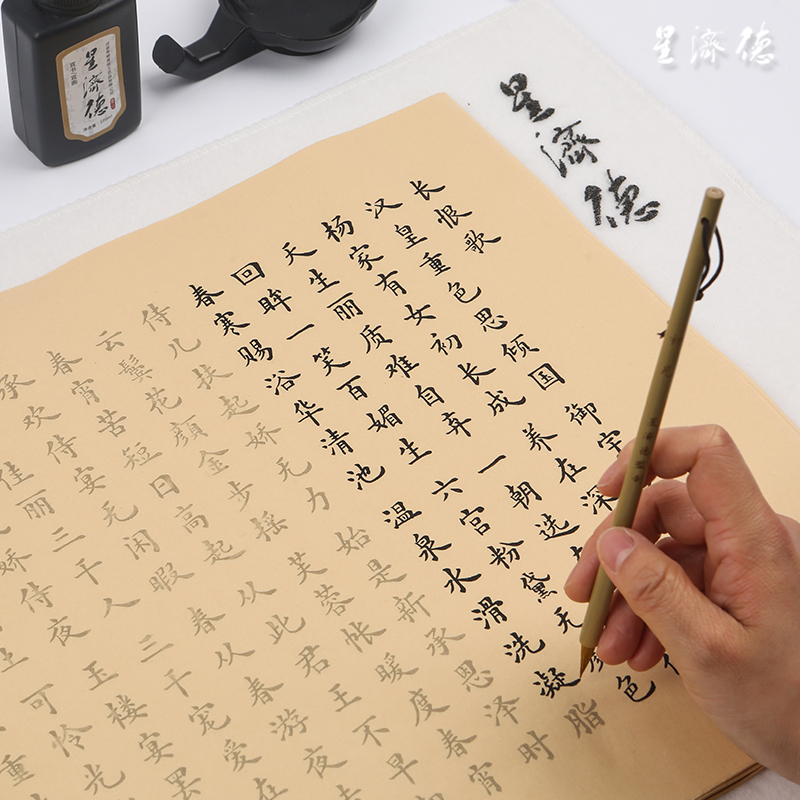 星濟德
星濟德
星濟德
长恨歌
汉皇重色思倾国 御宇
杨家有女初长成 养在深
天生丽质难自弃 一朝选
回眸一笑百媚生 六宫粉黛无颜色
春寒赐浴华清池 温泉水滑洗凝脂
侍儿扶起娇无力 始是新承恩泽时
云鬓花顏金步摇 芙蓉帐暖度春宵
春宵苦短日高起 从此君王不早
承欢侍宴无闲暇 春从春游夜
佳丽三千人 三千宠爱在
娇侍夜 玉楼宴罢
可怜光
重